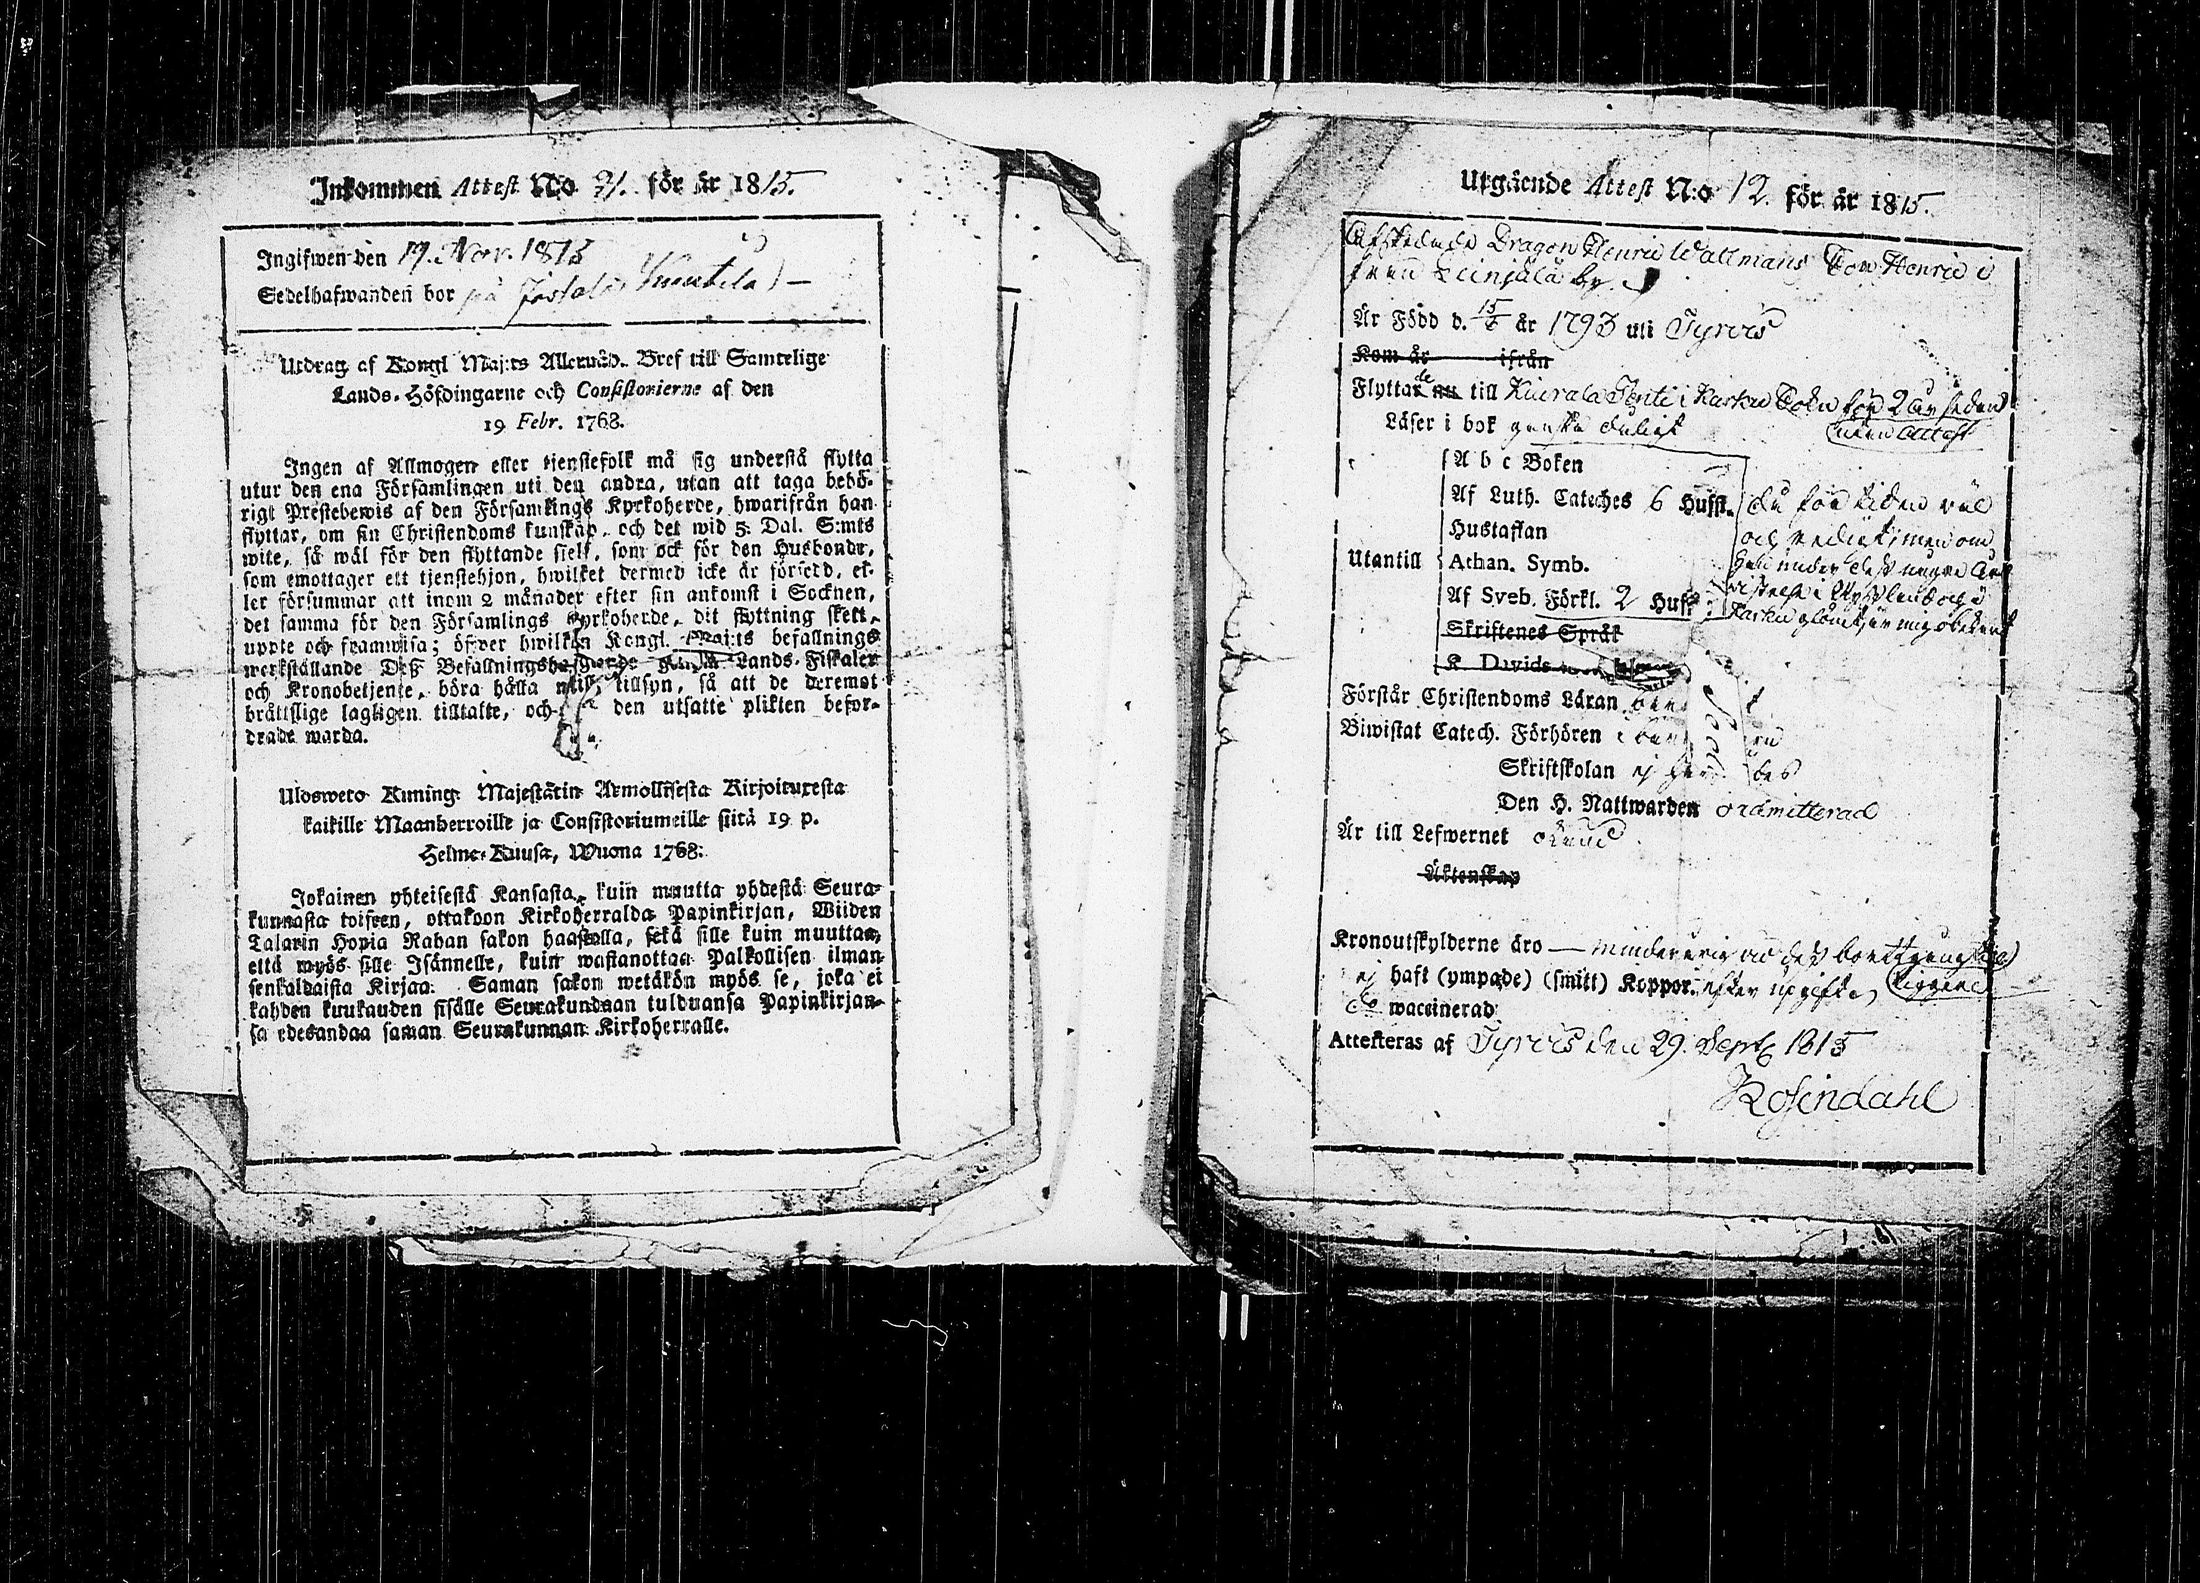 Inkommen Attest No 21. för år 1815.
Ingifwen den 19. Nov. 1815
Sedelhafwanden bor på
Utdrag af Kongl Maj:ts Allernåd. Bref till Samtelige
Lands-Höfdingarne och Consistorierne af den
19 Febr. 1768.
Ingen af Allmogen eller tjenstefolk må sig understå flytta
utur den ena Församlingen uti den andra, utan att taga behö-
rigt Prestebewis af den Församlings Kyrkoherde, hwarifrån han
flyttar, om sin Christendoms kunskap, och det wid 5: Dal. S:mts
wite, så wäl för den flyttande sjelf, som ock för den Husbonde,
som emottager ett tjenstehjon, hwilket dermed icke är försedd, el-
ler försummar att inom 2 månader efter sin ankomst i Socknen,
det samma för den Församlings Kyrkoherde, dit flyttning skett,
uppte och framwisa; öfwer hwilken Kongl. Maj:ts befallnings
werkställande Deß Befallningshafwande Lands-Fiskaler
och Kronobetjente, böra hålla tillsyn, så att de deremot
bråttslige lagligen tilltalte, och den utsatte plikten befor-
drade warda.
Uloswето Kuning: Majestätin Armollisesta Kirjoituxesta
kaikille Maanherroille ja Consistoriumeille siitä 19 p.
Helme-Kuusa, Wuona 1768:
Jokainen yhteisestä Kansasta, kuin muutta yhdestä Seura-
kunnasta toiseen, ottakoon Kirkoherralda Papinkirjan, Wiiden
Talarin Hopia Rahan sakon haastolla, sekä sille kuin muuttaa,
että myös sille Isännelle, kuin wastanottaa Palkollisen ilman
senkaldaista Kirjaa: Saman sakon wetäkön myös se, joka ei
kahden kuukauden sisälle Seurakundaan tulduansa Papinkirjan-
sa edesandaa saman Seurakunnan Kirkoherralle.
Utgående Attest N:o 12. för år 1815.
Afskedade Dragon Henric Wallmans Son Henric i
från by.
Är Född d. 15/6 år 1793 uti Tyrvis
Kom år ifrån
Flyttade nu till Kiurala i Karku Sokn för 2 år sedan
utan Attest
Läser i bok ganska
A b c Boken
Af Luth. Cateches 6 Hufst.
Hustaflan
Utantill Athan. Symb.
Af Sveb. Förkl. 2 Hufst
Skriftenes Språk
K Davids
för tiden väl
och men om
han under dess
wistelse i och i
Karku är mig obekant
Förstår Christendoms Läran
Biwistat Catech. Förhören
Skriftskolan ej
Den H. Nattwarden admitterad
Är till Lefwernet okänd
Äktenskap
Kronoutskylderne äro — minderårig vid dess
ej haft (ympade) (smitt) Koppor. efter upgift
waccinerad
Attesteras af Tyrvis den 29. Sept 1815
Rosendahl